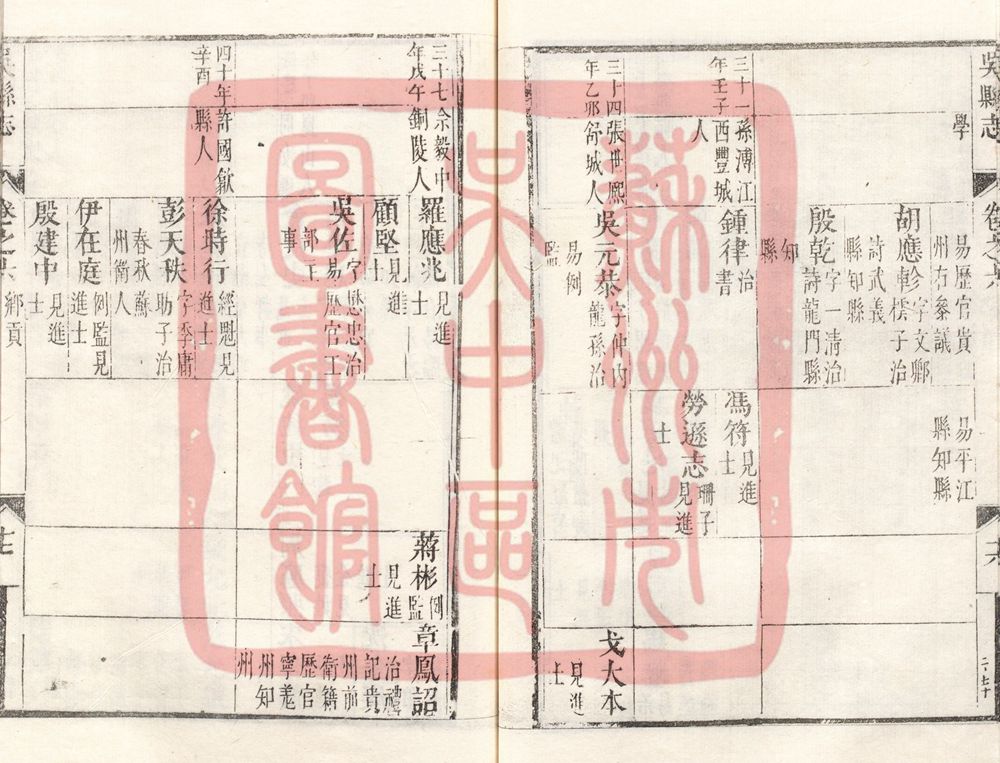 吳縣志
卷之六
學
易歷官貴
州右參議
易平江
縣知縣
胡應軫字文鄰
標子治
詩武義
縣知縣
殷乾字一清治
詩龍門縣
知縣
三十一
年壬子
孫溥江
西豐城
人
鍾律治
書
馮符見進
士
勞遜志珊子
見進
士
三十四
年乙卯
張世熙
舒城人
吳元恭字仲內
龍孫治
易例
監
戈大本
見進
士
三十七
年戊午
余毅中
銅陵人
羅應兆見進
士
蔣彬例
監
見進
士
章鳳詔
治禮
記貴
州前
衛籍
歷官
寧羗
州知
州
顧堅見進
士
吳佐字懋忠治
易歷官工
部主
事
四十年
辛酉
許國歙
縣人
徐時行經魁見
進士
彭天秩字季庸
助子治
春秋蘇
州衛人
伊在庭例監見
進士
殷建中見進
士
吳縣志
卷之六
鄉貢
圖書館
蘇州市
吳中區